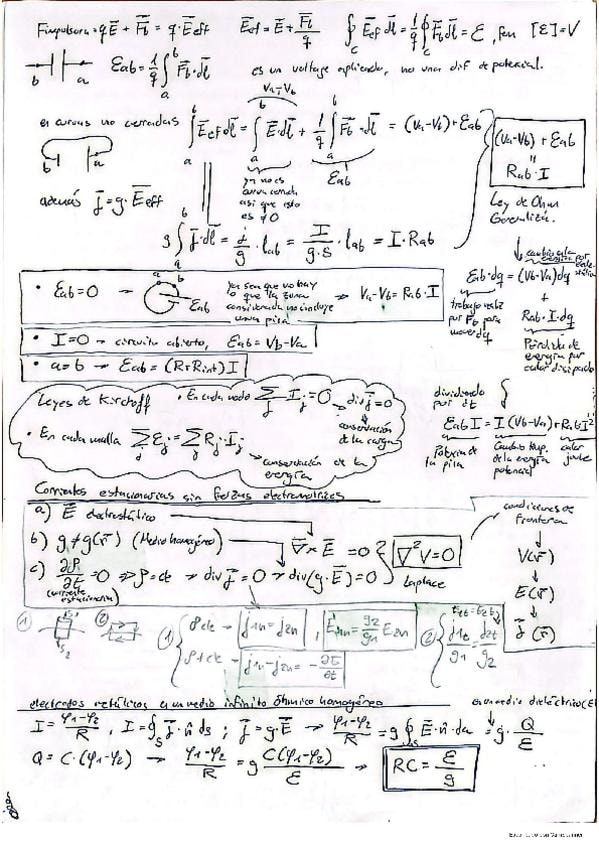 F impulsora = qE⃗ + F⃗b = q·E⃗eff    E⃗ef = E⃗ + F⃗b/q    ∮c E⃗ef dl⃗ = 1/q ∮c F⃗b dl⃗ = ℰ, fem [ℰ]=V
b a    ℰab = 1/q ∫a^b F⃗b·dl⃗    es un voltage aplicado, no una dif de potencial.
Va-Vb
en curvas no cerradas    ∫a^b E⃗ef dl⃗ = ∫a^b E⃗·dl⃗ + 1/q ∫a^b F⃗b·dl⃗ = (Va-Vb)+ℰab
b a    ya no es curva cerrada así que esto es ≠0    ℰab
(Va-Vb)+ℰab = Rab·I
Ley de Ohm Generaliza.
además j⃗ = g·E⃗eff
g ∫a^b j⃗·dl⃗ = j/g · lab = I/(g·s) · lab = I·Rab
ℰab·dq = (Vb-Va)dq + Rab·I·dq
trabajo realiz por Fb para mover dq
Pérdida de energía por calor disipado
• ℰab=0 → a b ℰab    ya sea que no hay o que la zona considerada no incluye una pila → Va-Vb = Rab·I
• I=0 → circuito abierto, ℰab = Vb-Va
• a=b → ℰab = (R+Rint)I
Leyes de Kirchoff    • En cada nodo ∑j Ij = 0 → div j⃗ = 0
conservación de la carga
• En cada malla ∑j ℰj = ∑j Rj·Ij → conservación de la energía
dividiendo por dt
ℰab I = I(Vb-Va) + Rab I²
Potencia de la pila    Cambio temp. de la energía potencial    calor joule
Corrientes estacionarias sin fuerzas electromotrices
a) E⃗ electrostático
b) g ≠ g(r⃗) (Medio homogéneo)    ∇⃗×E⃗ = 0    ∇²V=0
c) ∂ρ/∂t = 0 ⇒ ρ=cte → div j⃗ = 0 → div(g·E⃗)=0    Laplace
(corriente estacionaria)
condiciones de frontera
V(r⃗)
E(r⃗)
j⃗(r⃗)
① S1 S2 ②    ① ρ cte → j1n = j2n , E1n = g2/g1 E2n    ② E1t = E2t j1t/g1 = j2t/g2
ρ≠cte → j1n - j2n = -∂σ/∂t
electrodos metálicos a un medio infinito óhmico homogéneo
I = (φ1-φ2)/R , I = ∮S j⃗·n̂ ds ; j⃗ = g·E⃗ → (φ1-φ2)/R = g ∮S E⃗·n̂·da = g·Q/ε
Q = C·(φ1-φ2) → (φ1-φ2)/R = g C(φ1-φ2)/ε → RC = ε/g